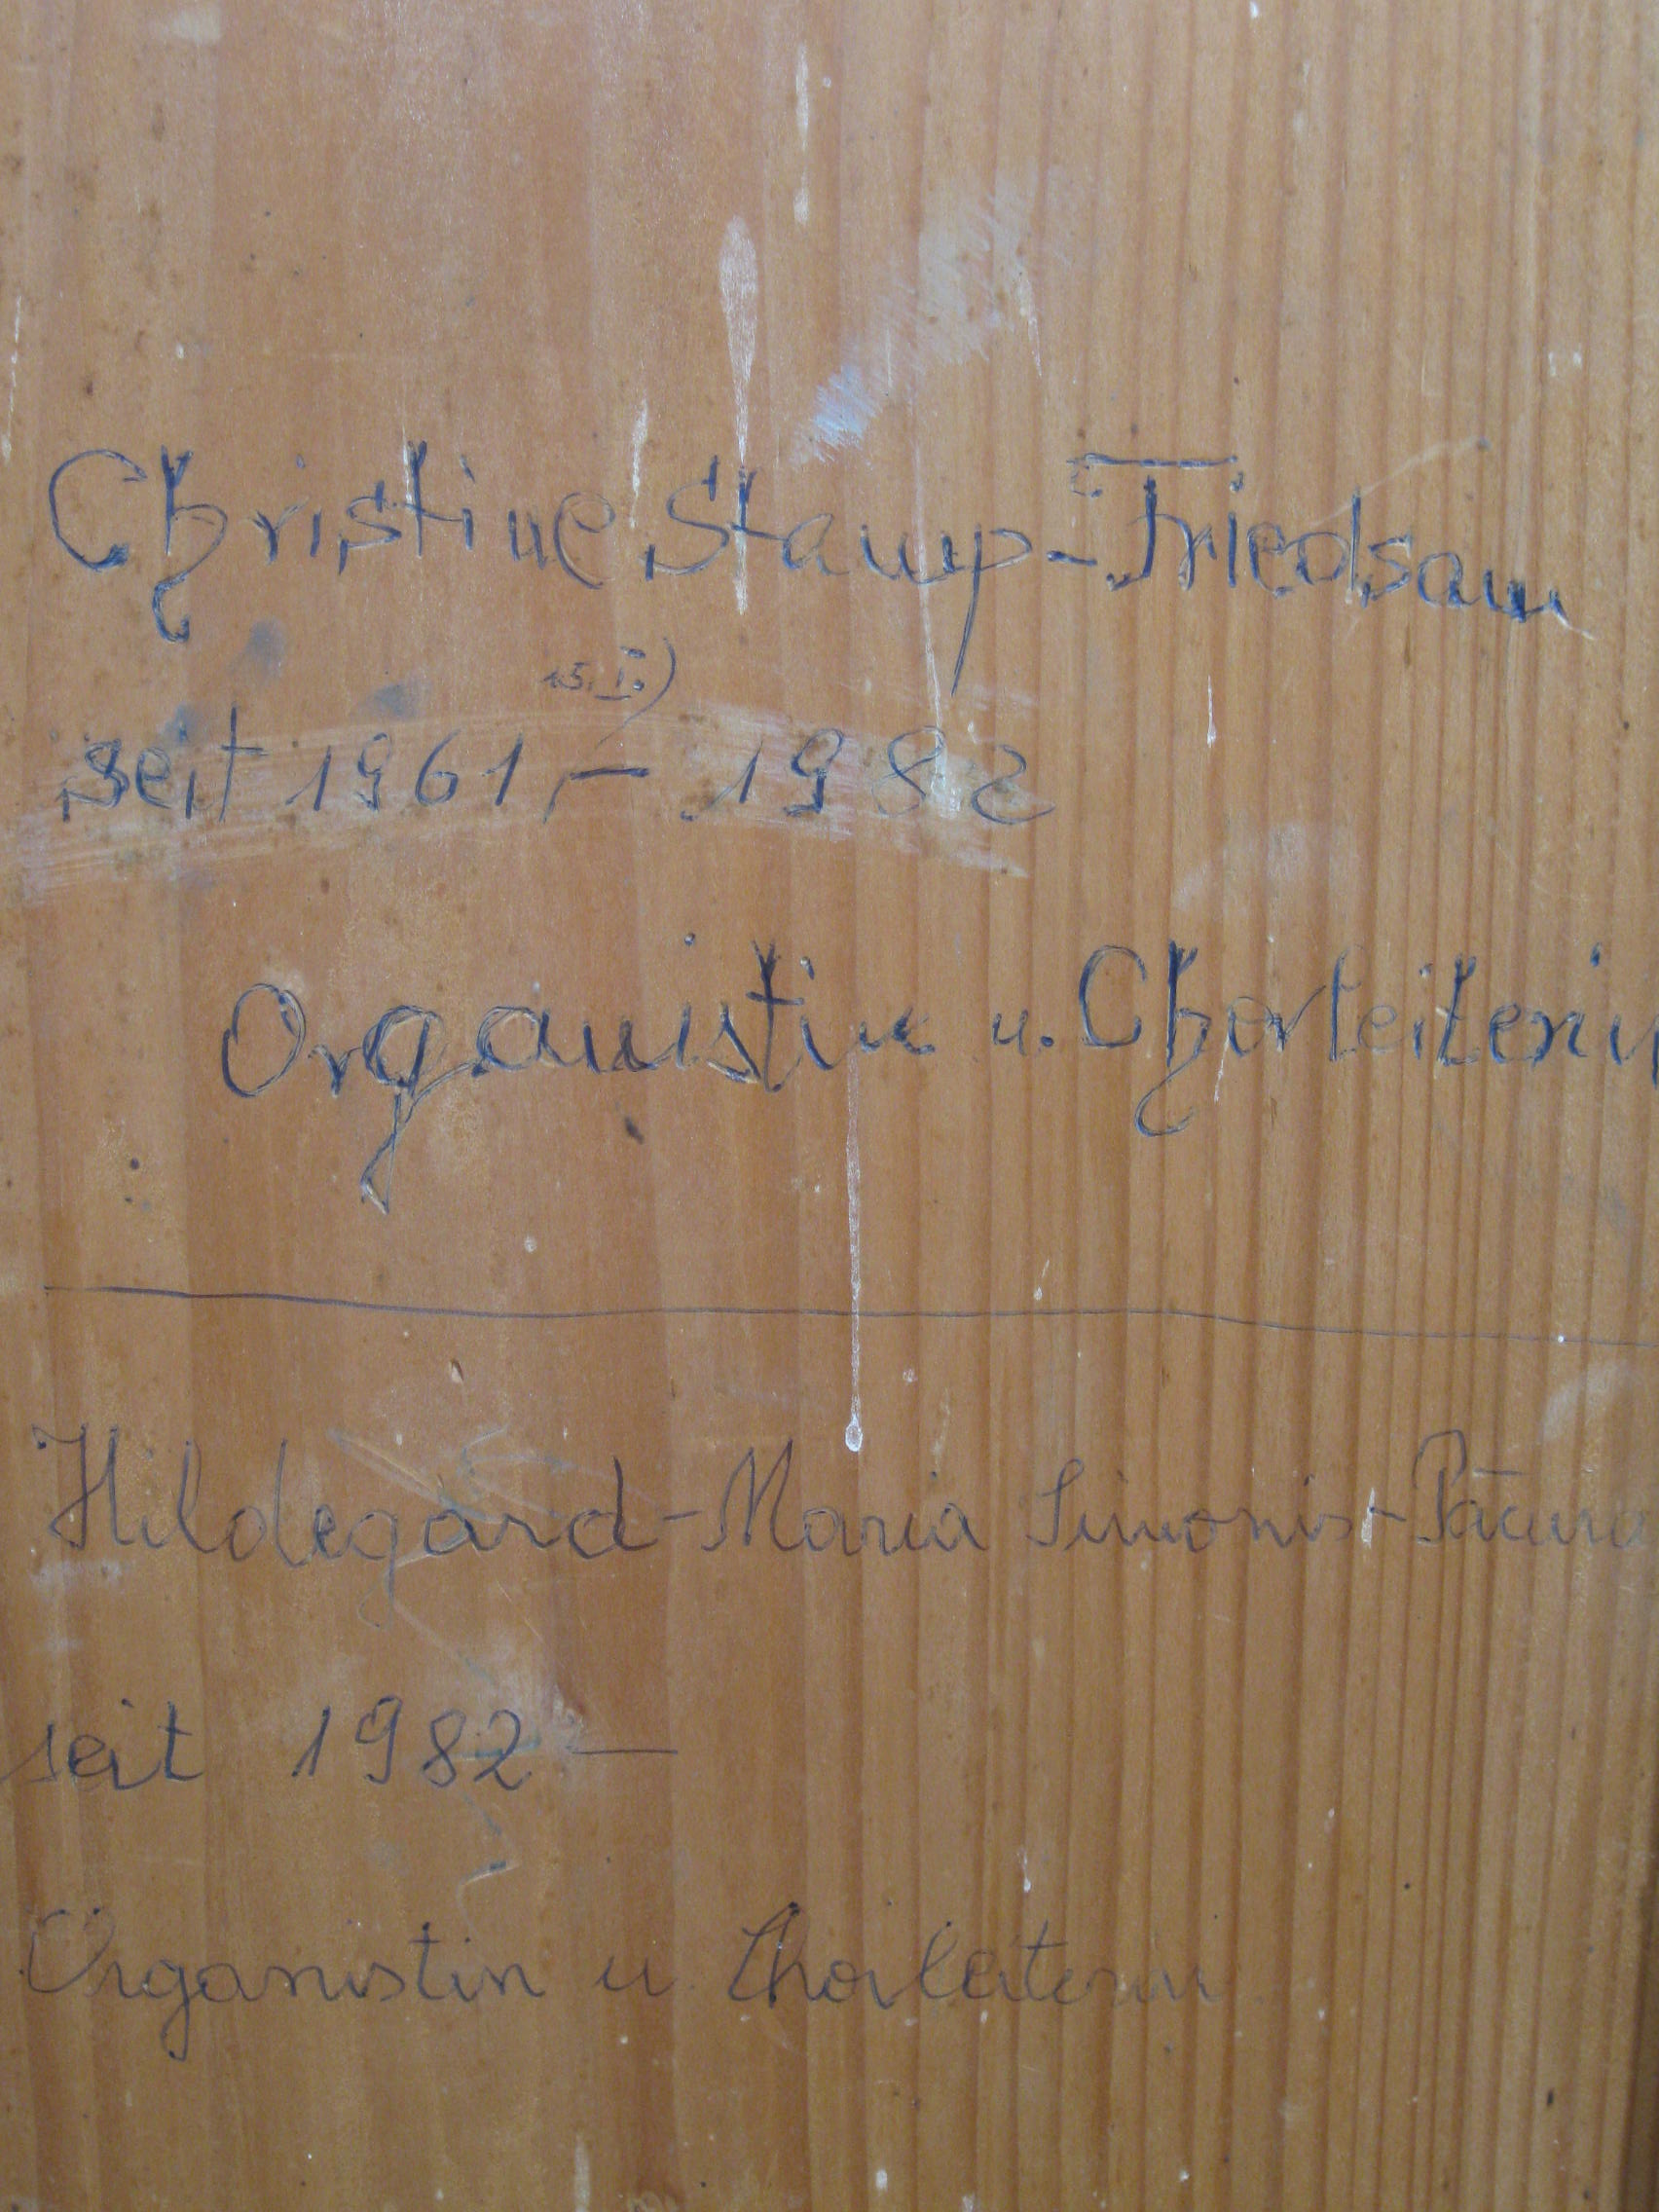 Christine Stamp-Friedsam
15. I.)
seit 1961, – 1982
Organistin u. Chorleiterin
Hildegard-Maria Simonis-
seit 1982 —
Organistin u. Chorleiterin